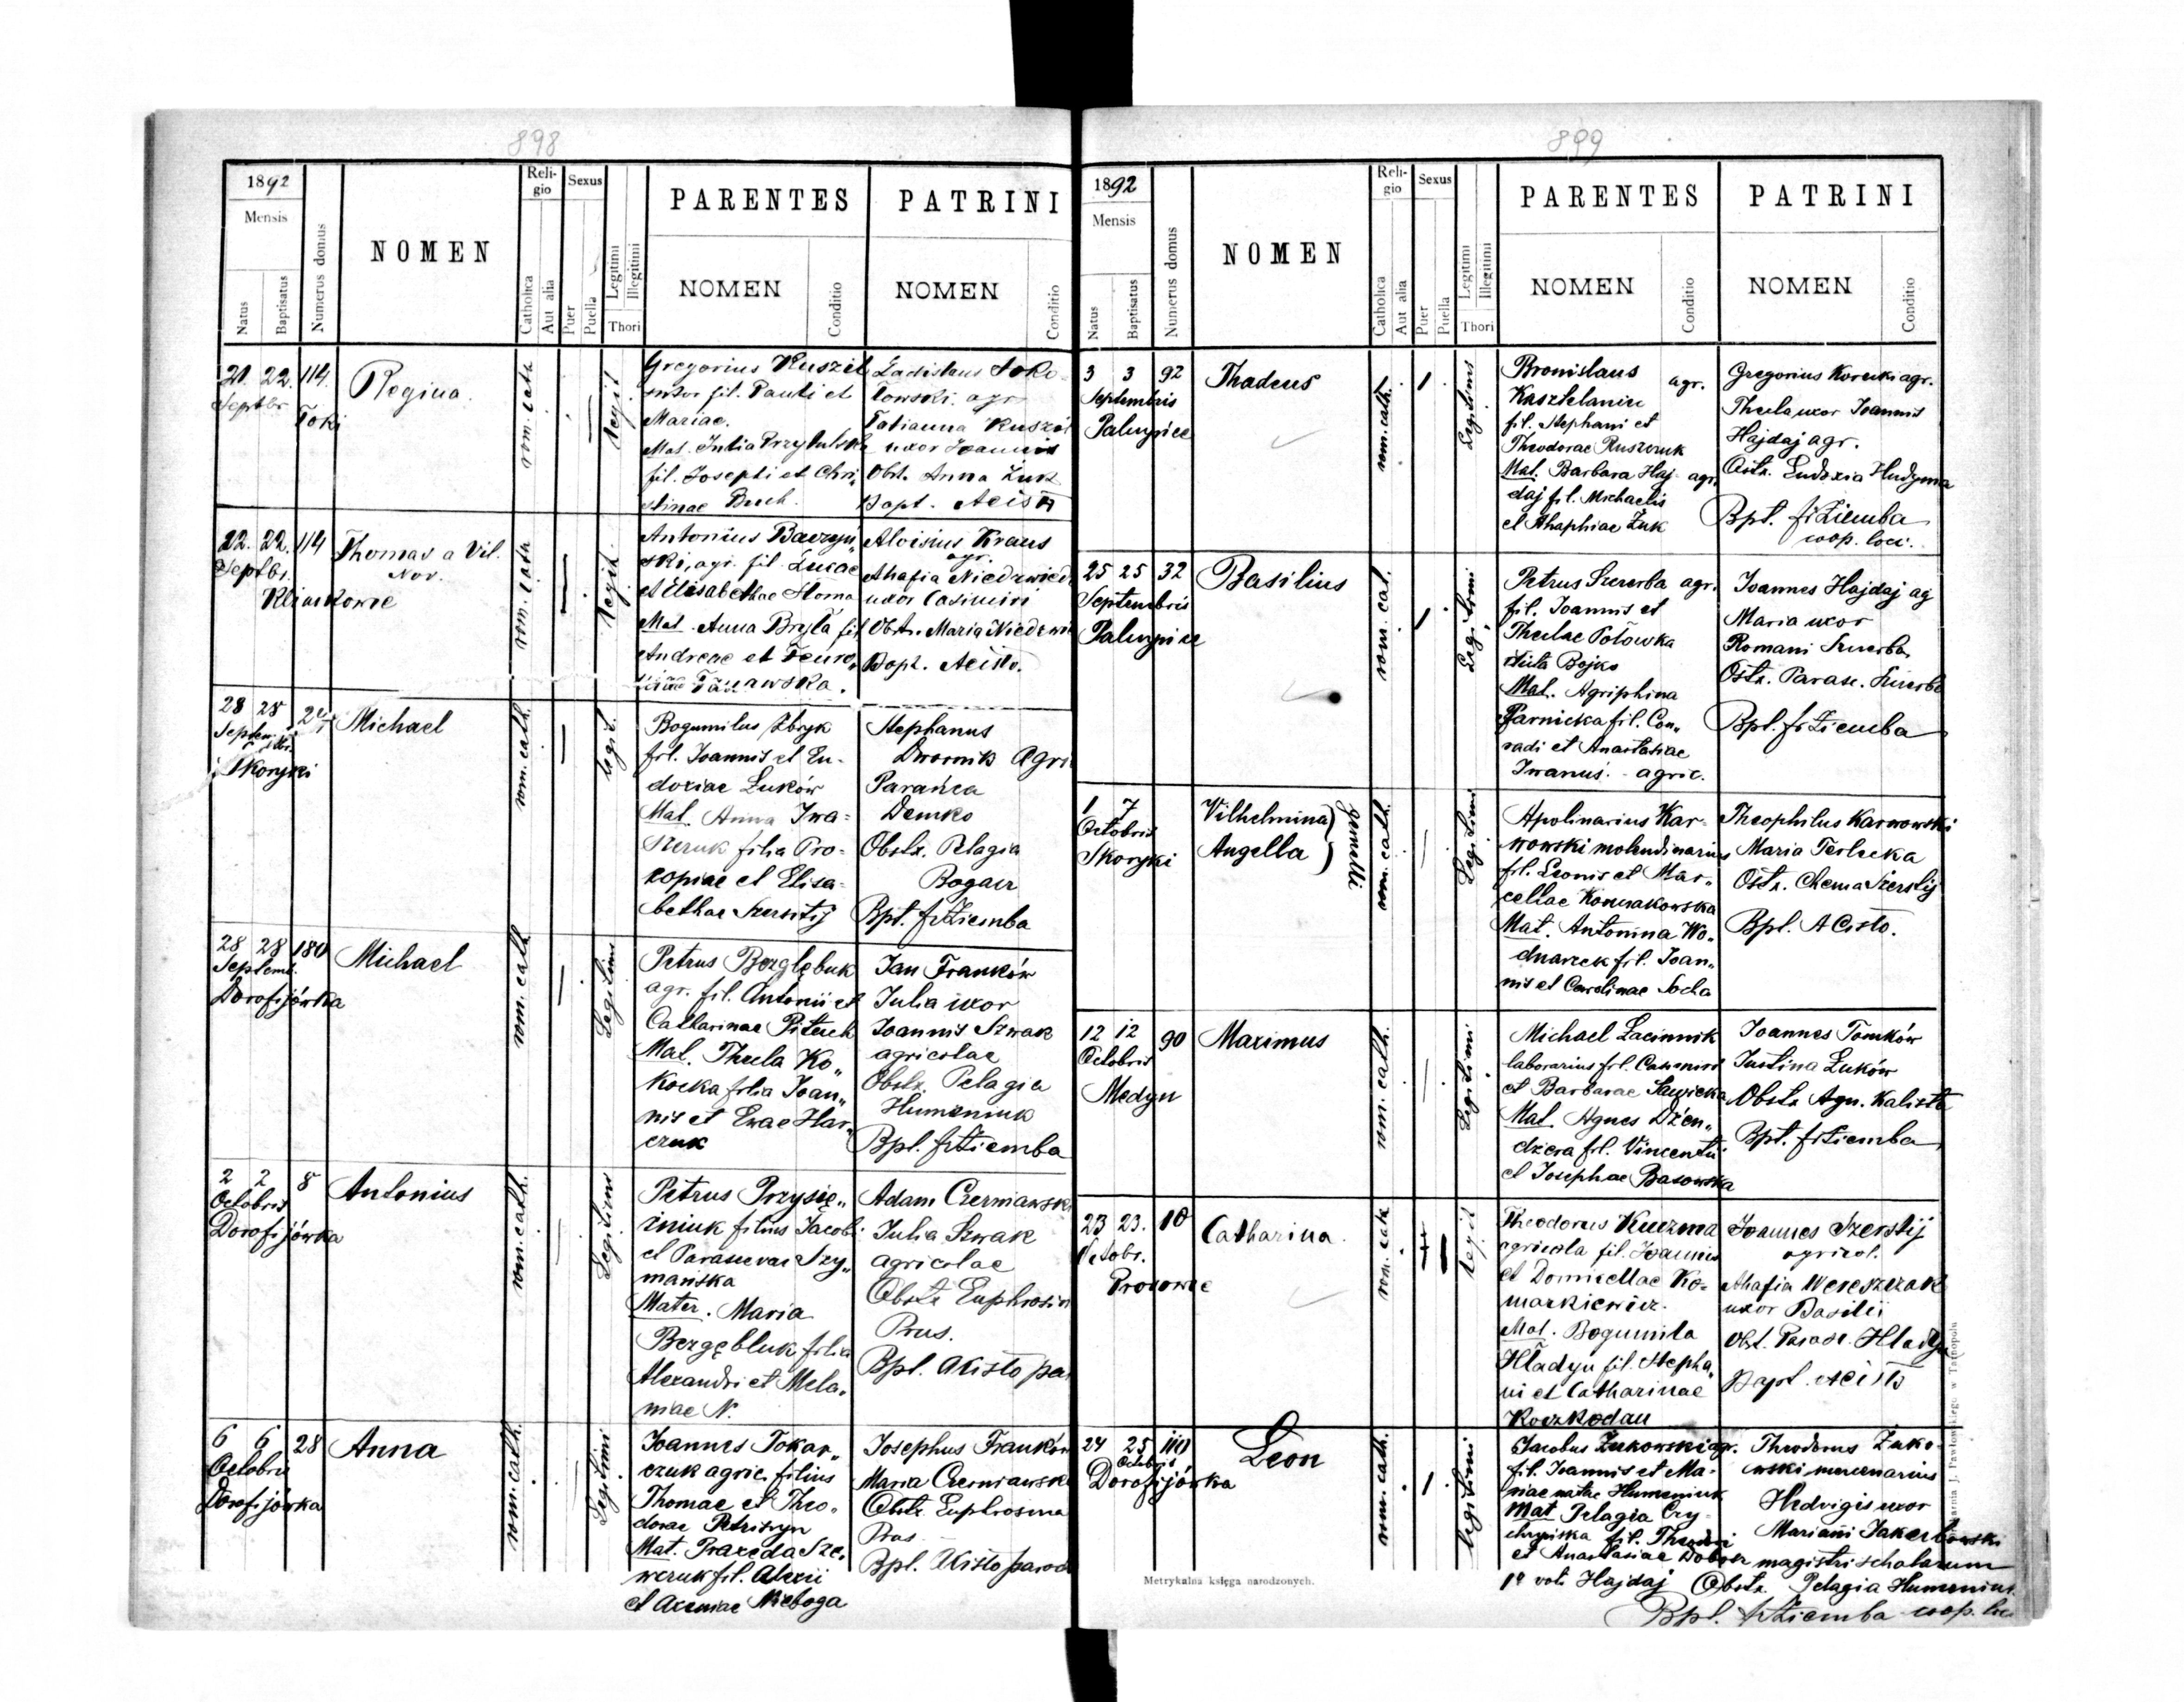 898
1892
Mensis
Natus
Baptisatus
Numerus domus
NOMEN
Religio
Catholica
Aut alia
Sexus
Puer
Puella
Legitimi
Illegitimi
Thori
PARENTES
NOMEN
Conditio
PATRINI
NOMEN
Conditio
21. 22. 114.
Septbr
Toki
Regina.
rom. cath
Legit
Gregorius Kuszil
fil. Pauli et
Mariae.
Mat. Julia Przybulska
fil. Josephi et Chri„
stinae Buch.
Ladislaus Soko
łowski. agr
Tatianna Kuszil
uxor Joannis
Obst. Anna Żuk
Bapt. ACisło
22. 22. 114
Septbr.
Klimkowce
Thomas a Vil.
Nov.
rom. cath
Legit.
Antonius Baczyń„
ski, agr. fil. Lucae
et Elisabethae Słoma
Mat. Anna Bryła fil
Andreae et
Tarnawska.
Aloisius Kraus
agr.
Ahafia Niedzwied
uxor Casimiri
Obst. Maria Niedzwie
Bapt. ACisło.
28 28
Septem
Skoryki
Michael
rom. cath.
legit.
Bogumilus Zbryk
fil. Joannis et Eu-
doxiae Łuków
Mat. Anna Iwa=
szczuk filia Pro-
kopiae et Elisa-
bethae Szerstij
Stephanus
Dwornik Agri
Parańka
Demko
Obstx. Pelagia
Bogacz
Bpt. frZiemba
28 28 180
Septemb.
Dorofijówka
Michael
rom. cath
Legitimi
Petrus Bezglębuk
agr. fil. Antonii et
Catharinae Pitech
Mat. Thecla Ko„
kocka filia Joan„
nis et Evae Har„
czuk
Jan Franków
Julia uxor
Joannis Szwak
agricolae
Obstx. Pelagia
Humeniuk
Bpt. frZiemba
2 2 8
Octobris
Dorofijówka
Antonius
rom. cath.
Legitimi
Petrus Przysię„
żniuk filius Jacobi
et Parascevae Szy„
mańska
Mater. Maria
Bezgębluk filia
Alexandri et Mela„
niae N.
Adam Czerniawski
Julia Szwak
agricolae
Obstx Euphrosin
Prus.
Bpt. ACisło par
6 6 28
Octobris
Dorofijówka
Anna
rom. cath.
Legitimi
Joannes Tokar„
czuk agric. filius
Thomae et Theo„
dorae Petriszyn
Mat. Praxeda Sze„
wczuk fil. Alexii
et Axeniae Nieboga
Josephus Franków
Maria Czerniawska
Obstx Euphrosina
Prus
Bpt. ACisło paroch
899
1892
Mensis
Natus
Baptisatus
Numerus domus
NOMEN
Religio
Catholica
Aut alia
Sexus
Puer
Puella
Legitimi
Illegitimi
Thori
PARENTES
NOMEN
Conditio
PATRINI
NOMEN
Conditio
3 3 92
Septembris
Palczyńce
Thadeus
rom. cath.
Legitimi
Bronislaus agr.
Kasztelaniec
fil. Stephani et
Theodorae Ruszczuk
Mat. Barbara Haj- agr.
daj fil. Michaelis
et Ahaphiae Żuk
Gregorius Korecki agr.
Thecla uxor Joannis
Hajdaj agr.
Ostx. Eudoxia Hudyma
Bpt. frZiemba
coop. loci.
25 25 32
Septembris
Palczyńce
Basilius
rom. cat.
Legitimi
Petrus Szczerba agr.
fil. Joannis et
Theclae Połowka
Bojko
Mat. Agriphina
Garnicka fil. Con„
radi et Anastasiae
Iwanuś - agric.
Joannes Hajdaj ag
Maria uxor
Romani Szczerba
Ostx. Parasc. Szczerba
Bpt. frZiemba
1 7
Octobris
Skoryki
Vilhelmina
Angella
gemelli
rom. cath.
Legitimi
Apolinarius Kar-
wowski molendinarius
fil. Leonis et Mar„
cellae Konnakowska
Mat. Antonina Wo„
dnarzek fil. Joan„
nis et Carolinae Socha
Theophilus Karwowski
Maria Terlecka
Ostx. Chema Szerstij
Bpt. ACisło.
12 12 90
Octobris
Medyn
Maximus
rom. cath.
Legitimi
Michael Łacinnik
laborarius fil. Casimiri
et Barbarae Sawicka
Mat. Agnes Dżen„
dżera fil. Vincentii
et Josephae Basowska
Joannes Tomków
Justina Łuków
Obstx Agn. Kalista
Bpt. frZiemba
23 23. 10
Octobr.
Prosowce
Catharina.
rom. cath
Legit
Theodorus Kuczma
agricola fil. Joannis
et Domicellae Ko-
markiewicz.
Mat. Bogumiła
Hładyn fil. Stepha„
ni et Catharinae
Koczkodan
Joannes Szerstij
agricol.
Ahafia Wereszczak
uxor Basilii
Obst. Parasc. Hładyn
Bapt. ACisło
24 25 110
Octobris
Dorofijówka
Leon
rom. cath.
legitimi
Jacobus Żukowski agr.
fil. Joannis et Ma-
riae natae Humeniuk
Mat Pelagia Cy-
chryńska fil. Theodori
et Anastasiae Dobosz
1o voti Hajdaj
Theodorus Żuko-
wski mercenarius
Hedvigis uxor
Mariani Jakubowski
magistri scholarum
Obstx. Pelagia Humeniuk
Bpt. frZiemba coop. loci
Metrykalna księga narodzonych.
Drukarnia J. Pawłowskiego w Tarnopolu